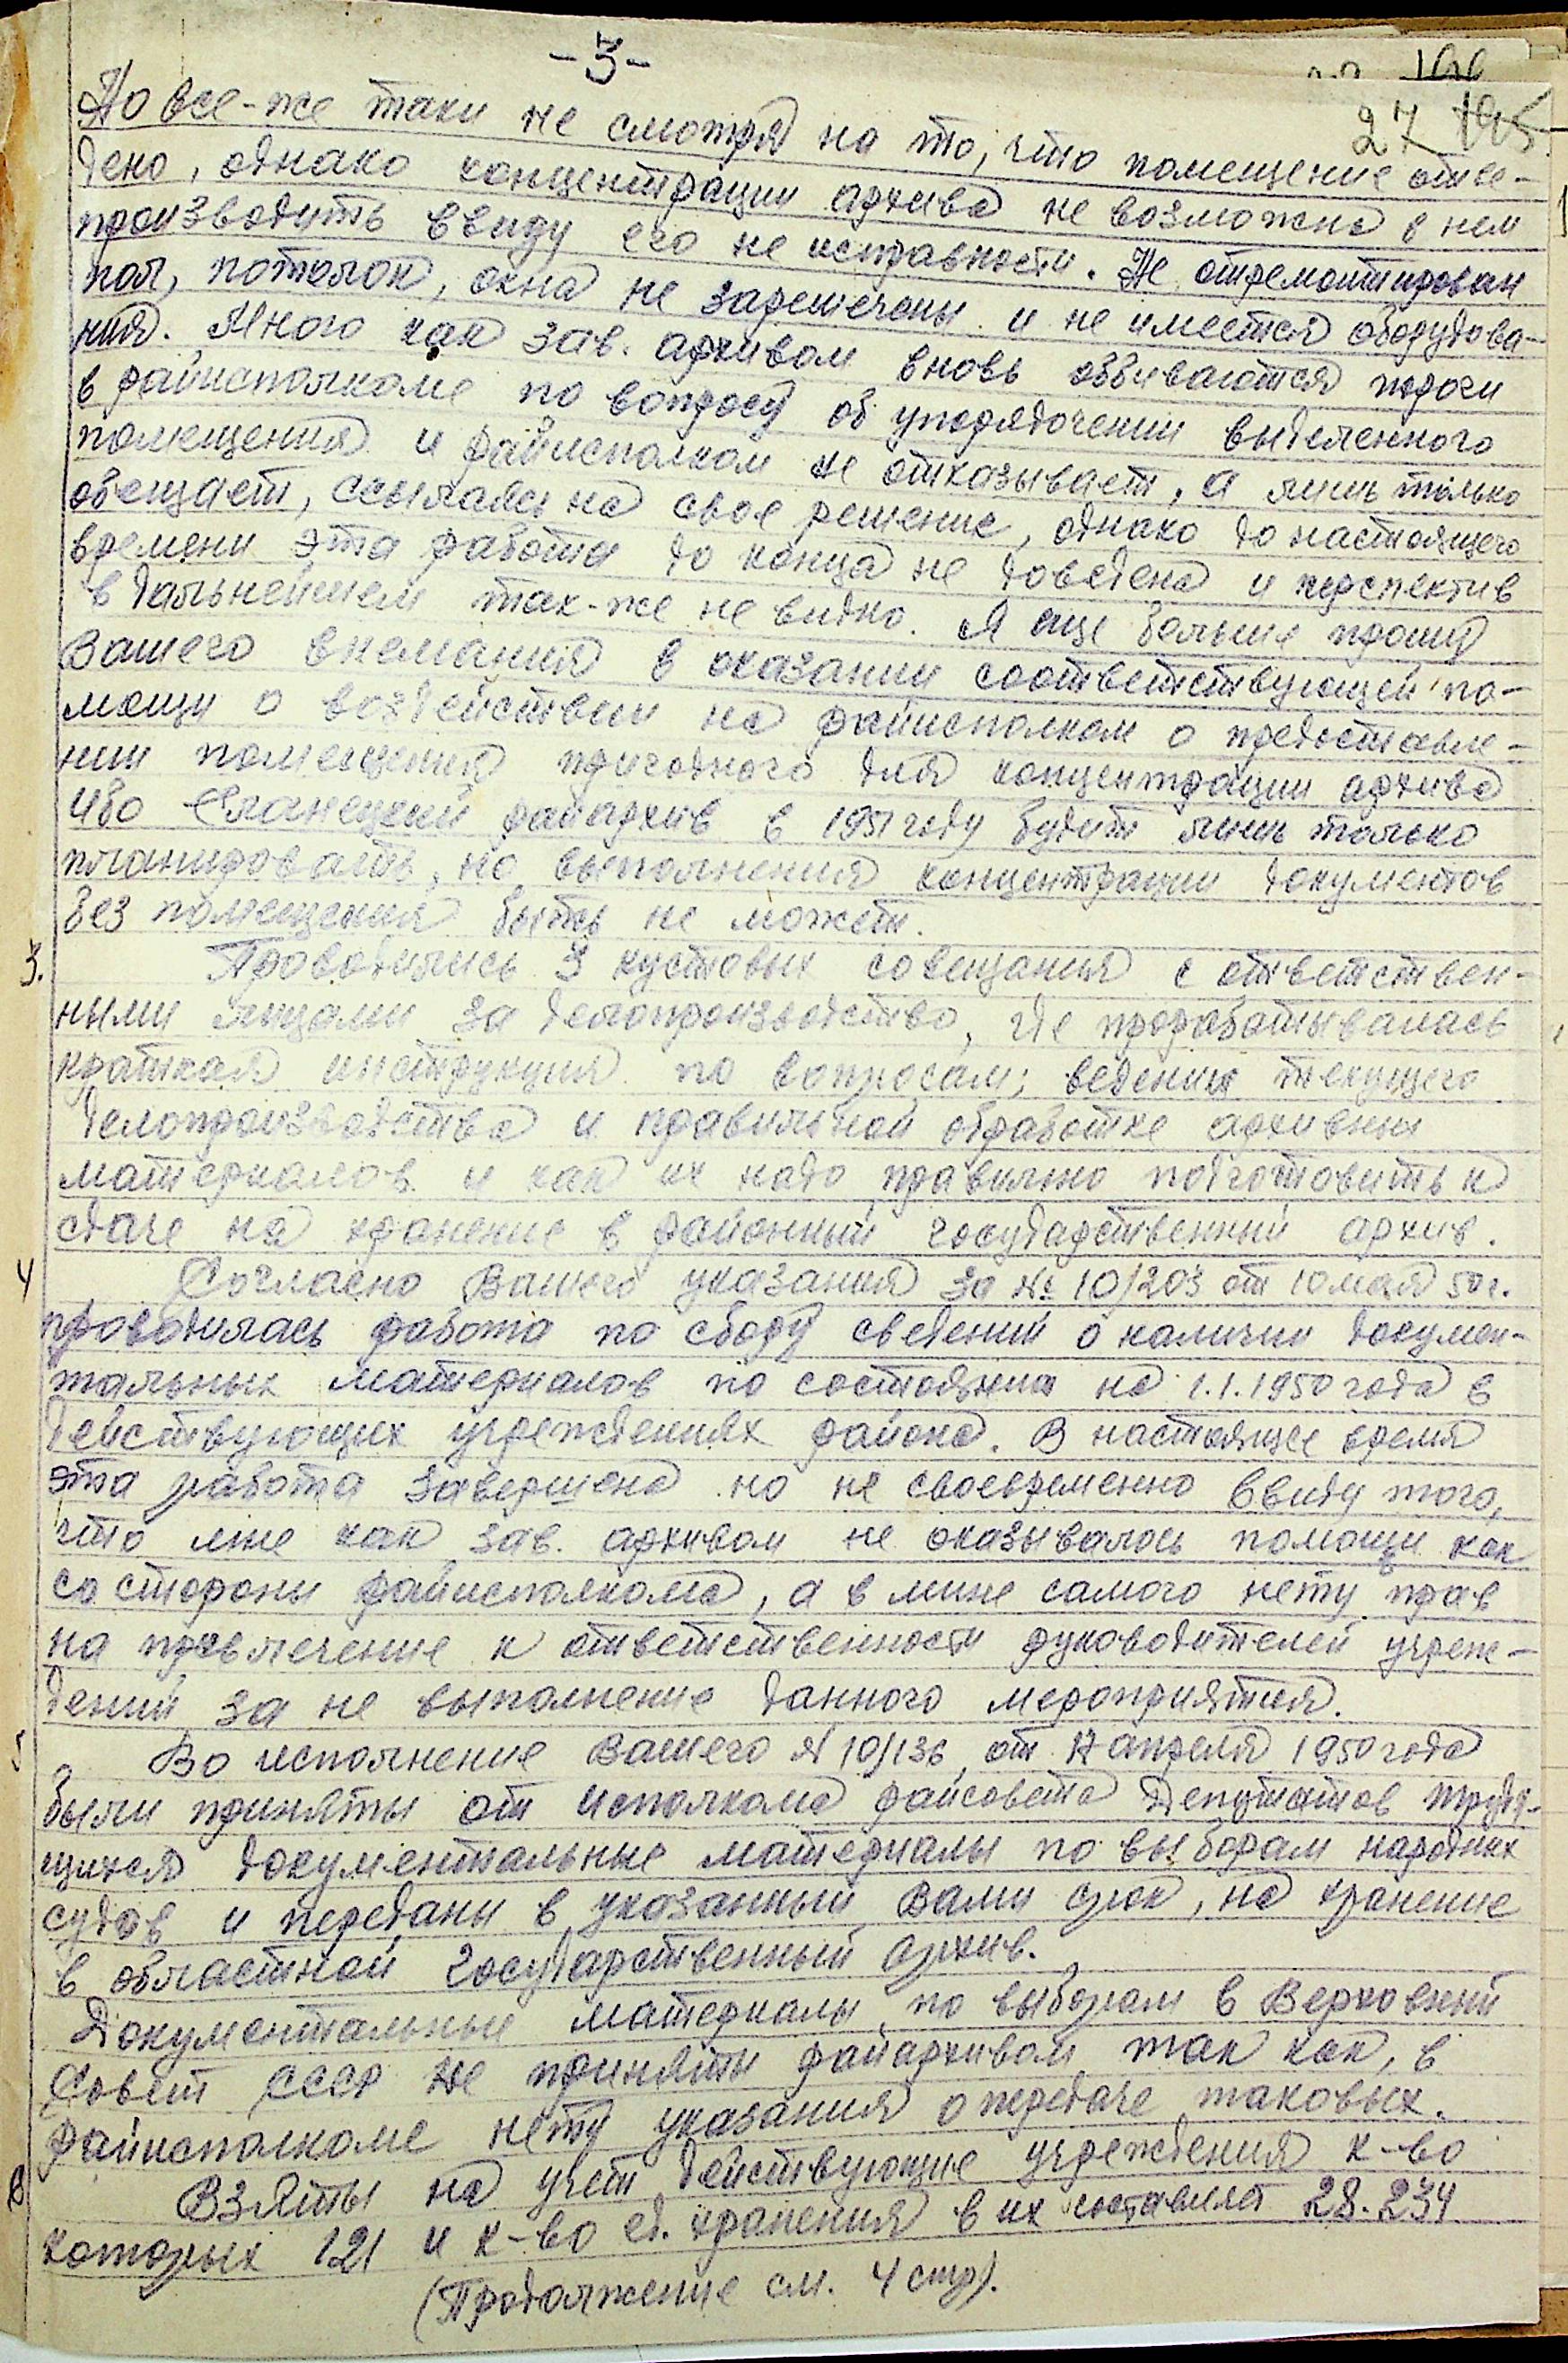 -3-
27
Но все-же таки не смотря на то, что помещение отве-
дено, однако концентрации архива не возможна в нем
производить ввиду его не исправности. Не отремонтирован
пол, потолок, окна не зарешечены и не имеется оборудова-
ния. Мною как зав. архивом вновь оббиваются пороги
в райисполкоме по вопросу об упорядочении выделенного
помещения и райисполком не отказывает, а лишь только
обещает, ссылаясь на свое решение, однако до настоящего
времени эта работа до конца не доведена и перспектив
в дальнейшем так-же не видно. Я еще больше прошу
Вашего внемания в оказании соответствующей по-
мощи о воздействии на райисполком о предоставле-
нии помещения пригодного для концентрации архива
Ибо Еланецкий райархив в 1951 году будет лишь только
планировать, но выполнения концентрации документов
без помещения быть не может.
3. Проводились 3 кустовых совещания с ответствен-
ными лицами за делопроизводство, где прорабатывалась
краткая инструкция по вопросам; ведения текущего
делопроизводства и правильной обработке архивных
материалов и как их надо правильно подготовить к
сдаче на хранение в районный государственный архив.
4 Согласно Вашего указания за № 10/203 от 10 мая 50 г.
проводилась работа по сбору сведений о наличии докумен-
тальных материалов по состоянию на 1.1.1950 года в
действующих учреждениях района. В настоящее время
эта работа завершена но не своевременно ввиду того,
что мне как зав. архивом не оказывалось помощи как
со стороны райисполкома, а в мине самого нету прав
на привлечение к ответственности руководителей учреж-
дений за не выполнение данного мероприятия.
5 Во исполнение Вашего № 10/136 от 17 апреля 1950 года
были приняты от исполкома райсовета Депутатов трудя-
щихся документальные материалы по выборам народных
судов и переданы в указанный Вами срок, на хранение
в областной государственный архив.
Документальные материалы по выборам в Верховный
Совет СССР не приняты райархивом так как, в
райисполкоме нету указания о передаче таковых.
6 Взяты на учет действующие учреждения к-во
которых 121 и к-во ед. хранения в их составила 28.234
(Продолжение см. 4 стр).